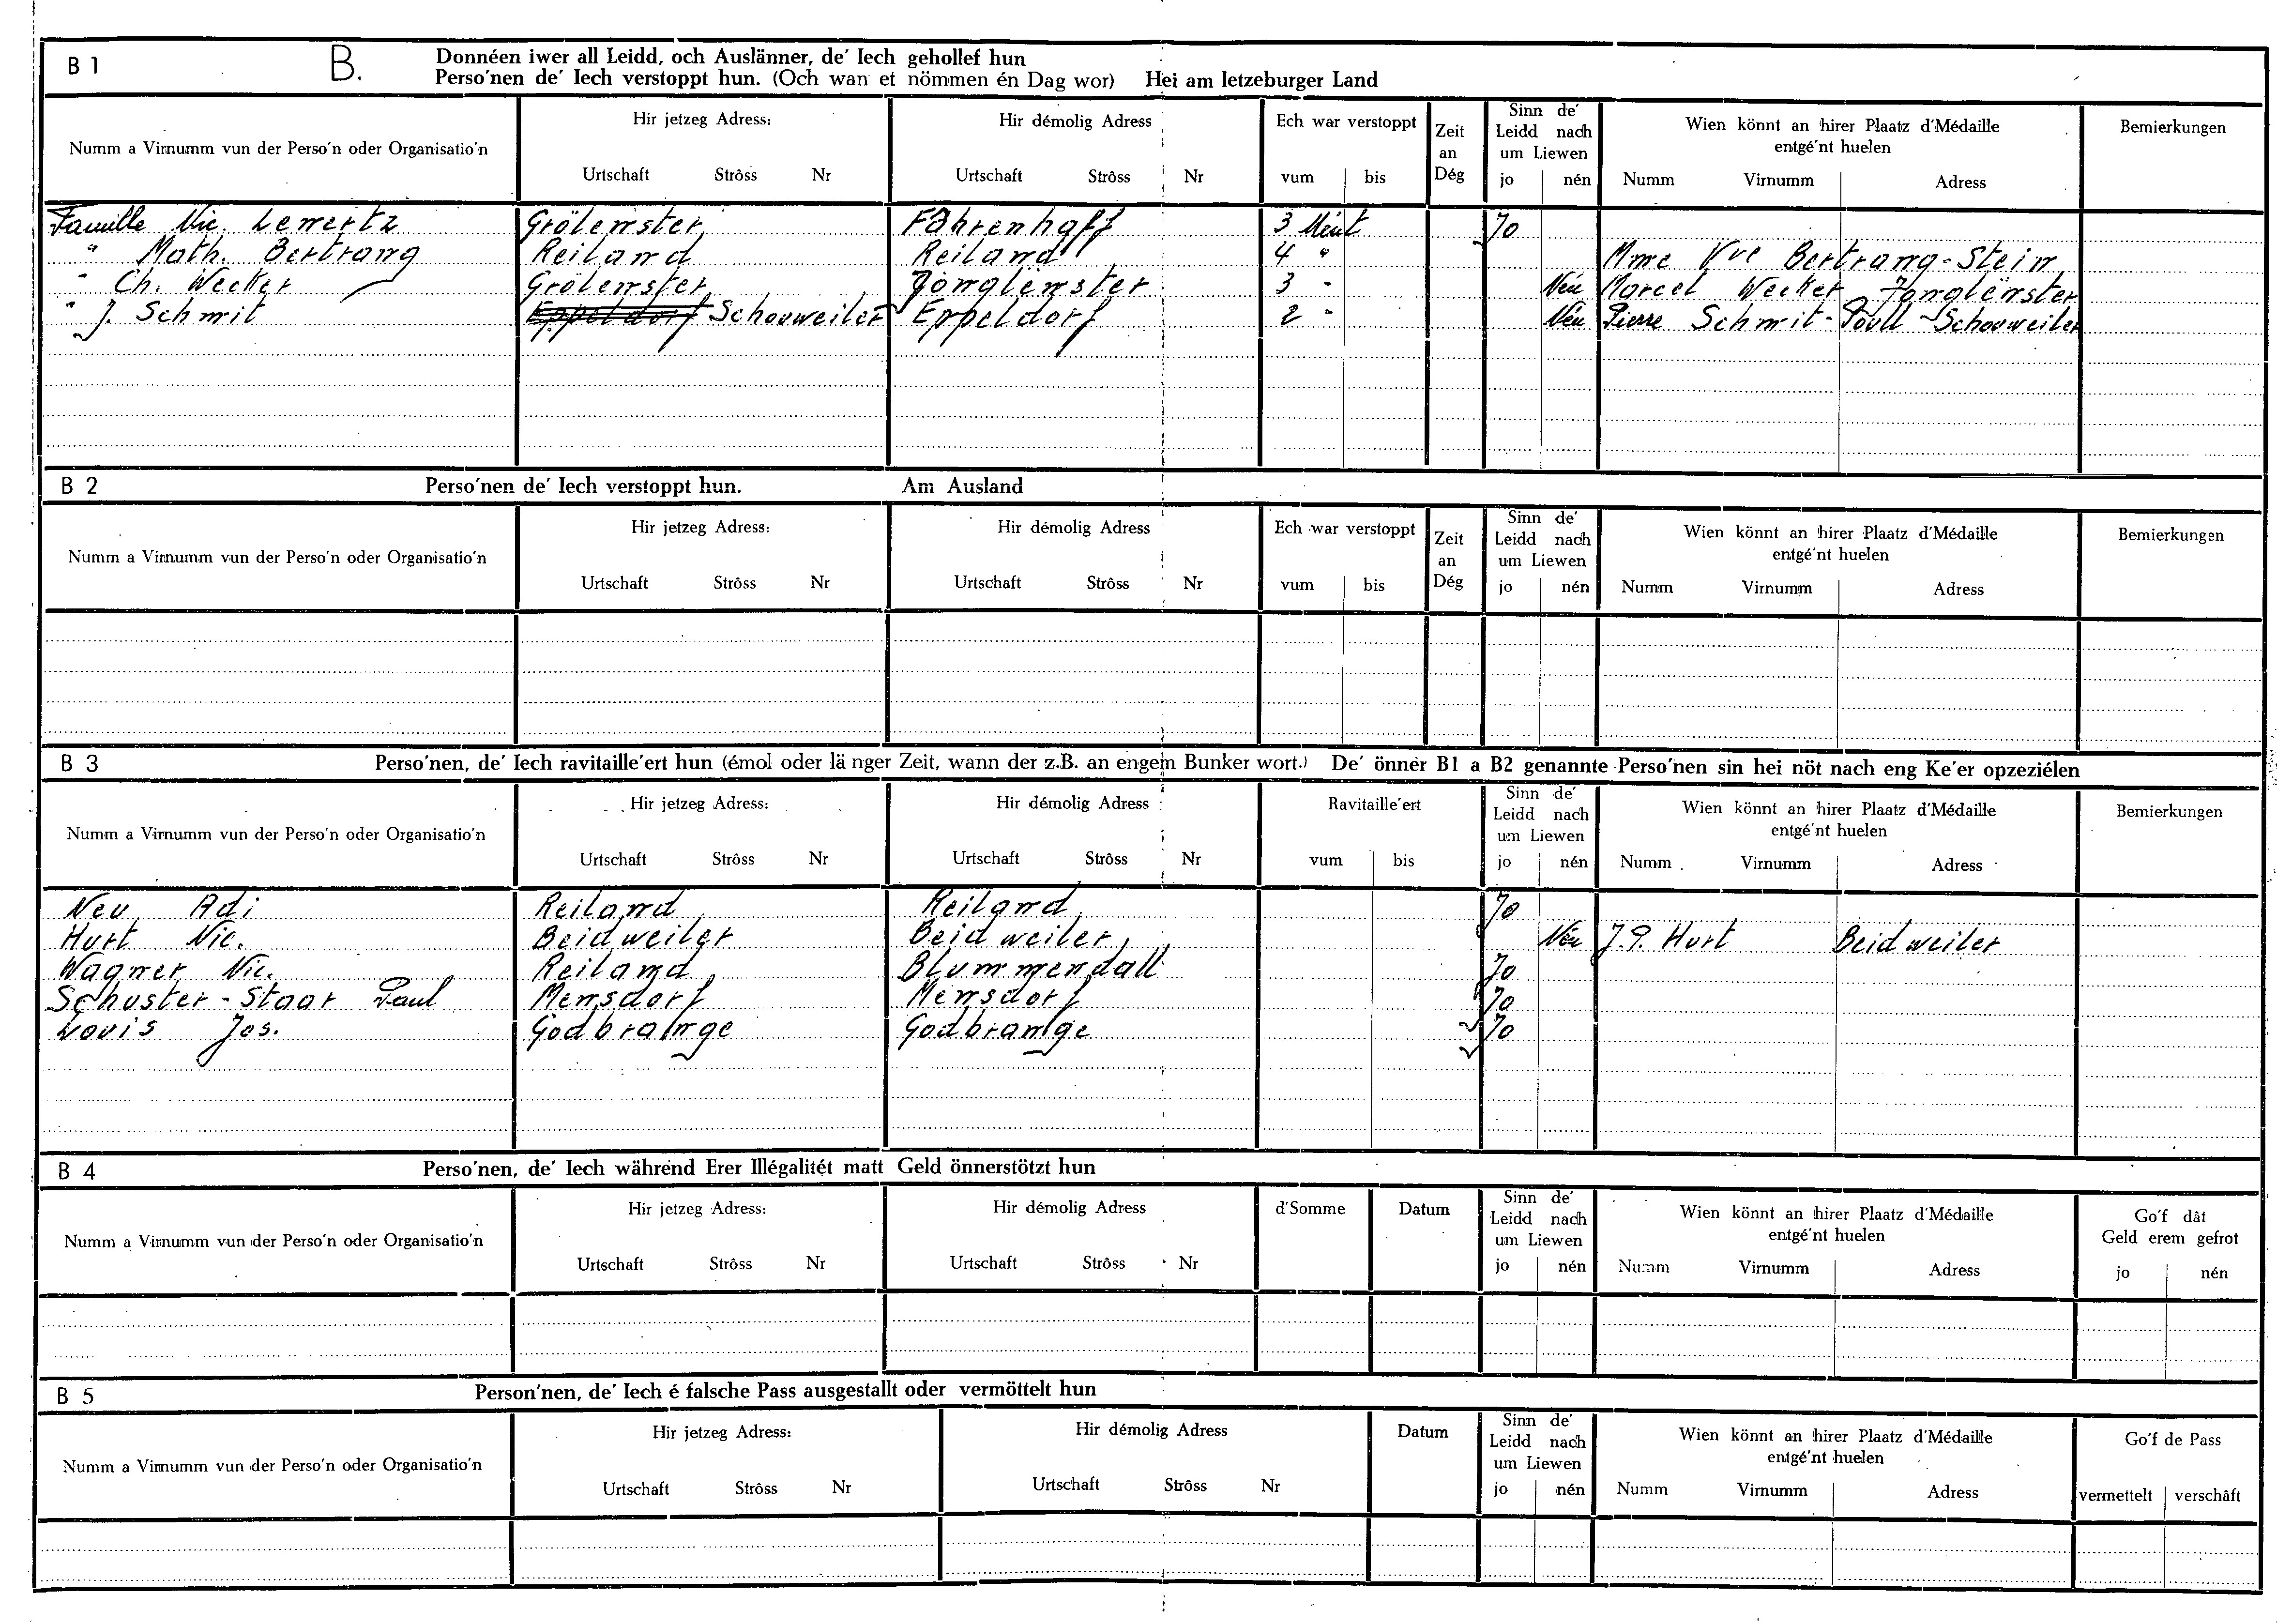 B 1 B. Donnéen iwer all Leidd, och Auslänner, de' Iech gehollef hun
Perso'nen de' Iech verstoppt hun. (Och wan et nömmen én Dag wor) Hei am letzeburger Land
Numm a Virnumm vun der Perso'n oder Organisatio'n
Hir jetzeg Adress:
Urtschaft Strôss Nr
Hir démolig Adress
Urtschaft Strôss Nr
Ech war verstoppt
vum bis
Zeit
an
Dég
Sinn de'
Leidd nach
um Liewen
jo nén
Wien könnt an hirer Plaatz d'Médaille
entgé'nt huelen
Numm Virnumm Adress
Bemierkungen
Famille Nic. Lenertz Grölenster Fährenhaff 3 Méint Jo
" Math. Bertrang Reiland Reiland 4 " Mme Vve Bertrang-Stein
" Ch. Wecker Grölenster Jonglenster 3 " Nén Marcel Wecker Jonglenster
" J. Schmit Eppeldorf Schouweiler Eppeldorf 2 " Nén Pierre Schmit-Poull Schouweiler
B 2 Perso'nen de' Iech verstoppt hun. Am Ausland
Numm a Virnumm vun der Perso'n oder Organisatio'n
Hir jetzeg Adress:
Urtschaft Strôss Nr
Hir démolig Adress
Urtschaft Strôss Nr
Ech war verstoppt
vum bis
Zeit
an
Dég
Sinn de'
Leidd nach
um Liewen
jo nén
Wien könnt an hirer Plaatz d'Médaille
entgé'nt huelen
Numm Virnumm Adress
Bemierkungen
B 3 Perso'nen, de' Iech ravitaille'ert hun (émol oder länger Zeit, wann der z.B. an engem Bunker wort.) De' önner B1 a B2 genannte Perso'nen sin hei nöt nach eng Ke'er opzeziélen
Numm a Virnumm vun der Perso'n oder Organisatio'n
Hir jetzeg Adress:
Urtschaft Strôss Nr
Hir démolig Adress
Urtschaft Strôss Nr
Ravitaille'ert
vum bis
Sinn de'
Leidd nach
um Liewen
jo nén
Wien könnt an hirer Plaatz d'Médaille
entgé'nt huelen
Numm Virnumm Adress
Bemierkungen
Neu Adi Reiland Reiland Jo
Hurt Nic. Beidweiler Beidweiler Nén J.P. Hurt Beidweiler
Wagner Nic. Reiland Blummendall Jo
Schuster-Staar Paul Mensdorf Mensdorf Jo
Louis Jos. Godbrange Godbrange Jo
B 4 Perso'nen, de' Iech während Erer Illégalitét matt Geld önnerstötzt hun
Numm a Virnumm vun der Perso'n oder Organisatio'n
Hir jetzeg Adress:
Urtschaft Strôss Nr
Hir démolig Adress
Urtschaft Strôss Nr
d'Somme
Datum
Sinn de'
Leidd nach
um Liewen
jo nén
Wien könnt an hirer Plaatz d'Médaille
entgé'nt huelen
Numm Virnumm Adress
Go'f dât
Geld erem gefrot
jo nén
B 5 Person'nen, de' Iech é falsche Pass ausgestallt oder vermöttelt hun
Numm a Virnumm vun der Perso'n oder Organisatio'n
Hir jetzeg Adress:
Urtschaft Strôss Nr
Hir démolig Adress
Urtschaft Strôss Nr
Datum
Sinn de'
Leidd nach
um Liewen
jo nén
Wien könnt an hirer Plaatz d'Médaille
entgé'nt huelen
Numm Virnumm Adress
Go'f de Pass
vermettelt verschâft